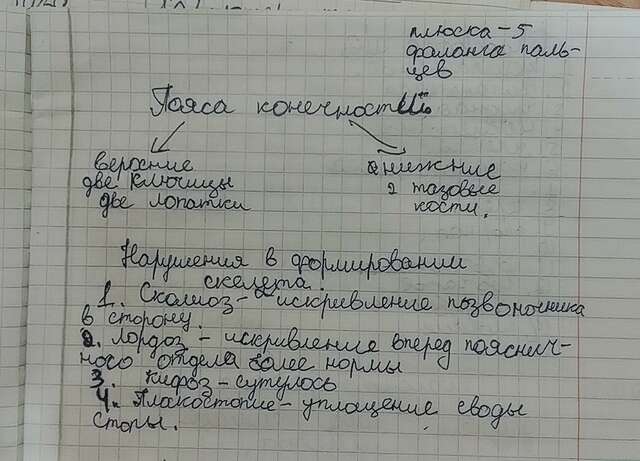 плюска - 5
фаланга паль-
цев
Пояса конечностей.
верхние
две ключицы
две лопатки
нижние
2 тазовые
кости.
Нарушения в формировании
скелета.
1. Сколиоз - искривление позвоночника
в сторону.
2. Лордоз - искривление вперед пояснич-
ного отдела более нормы
3. Кифоз - сутулось
4. Плакостопие - уплощение своды
стопы.